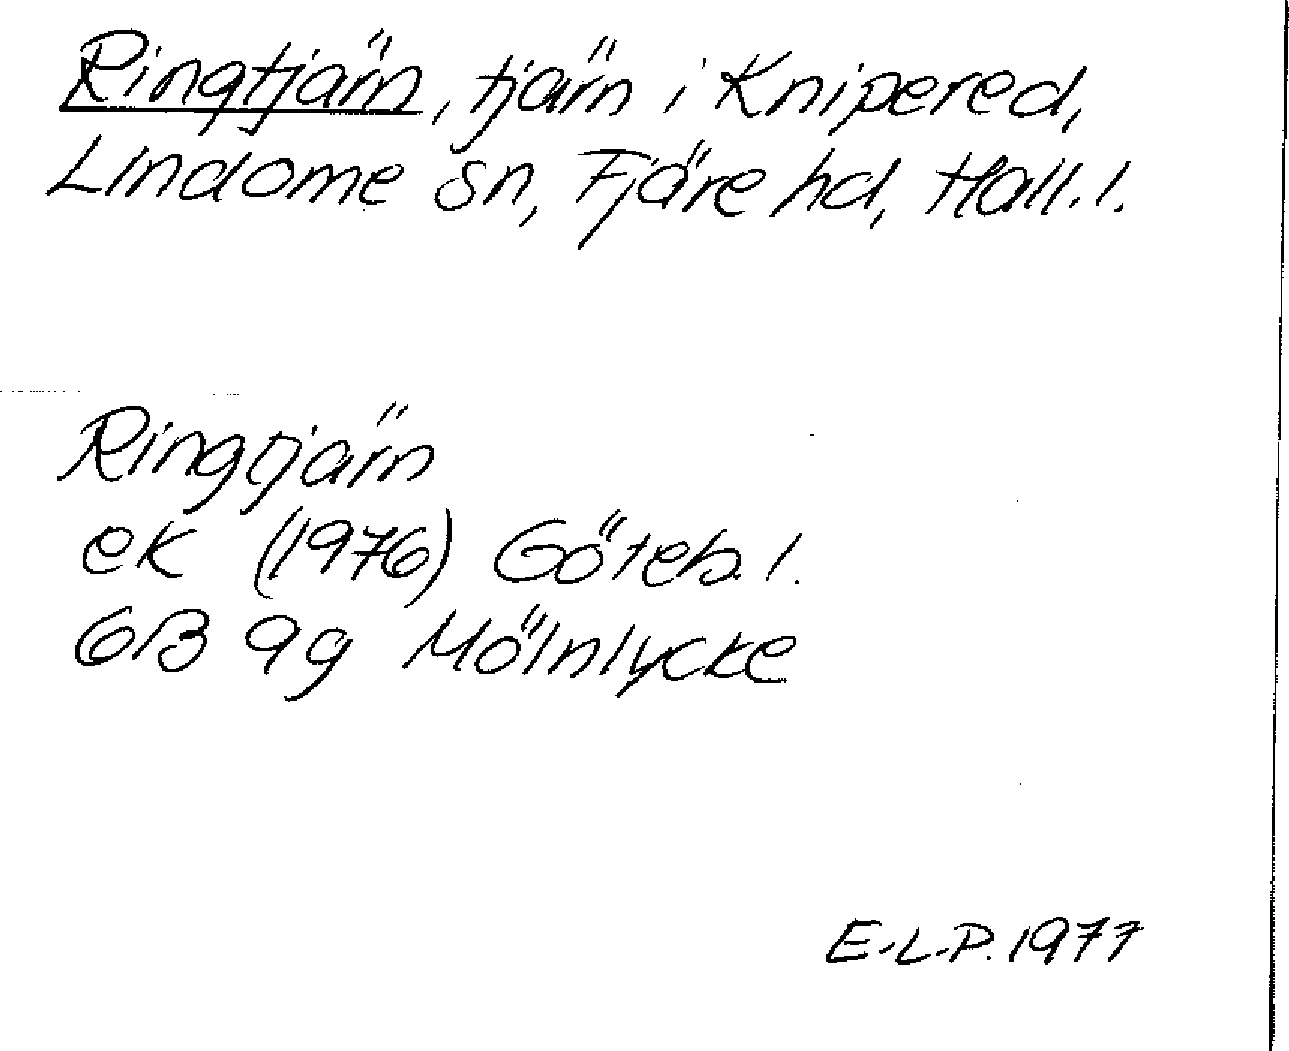 Ringtjärn, tjärn i Knipered,
Lindome sn, Fjäre hd, Hall. l.
Ringtjärn
ek (1976) Göteb. l.
6B 9g Mölnlycke
E.-L.P. 1977